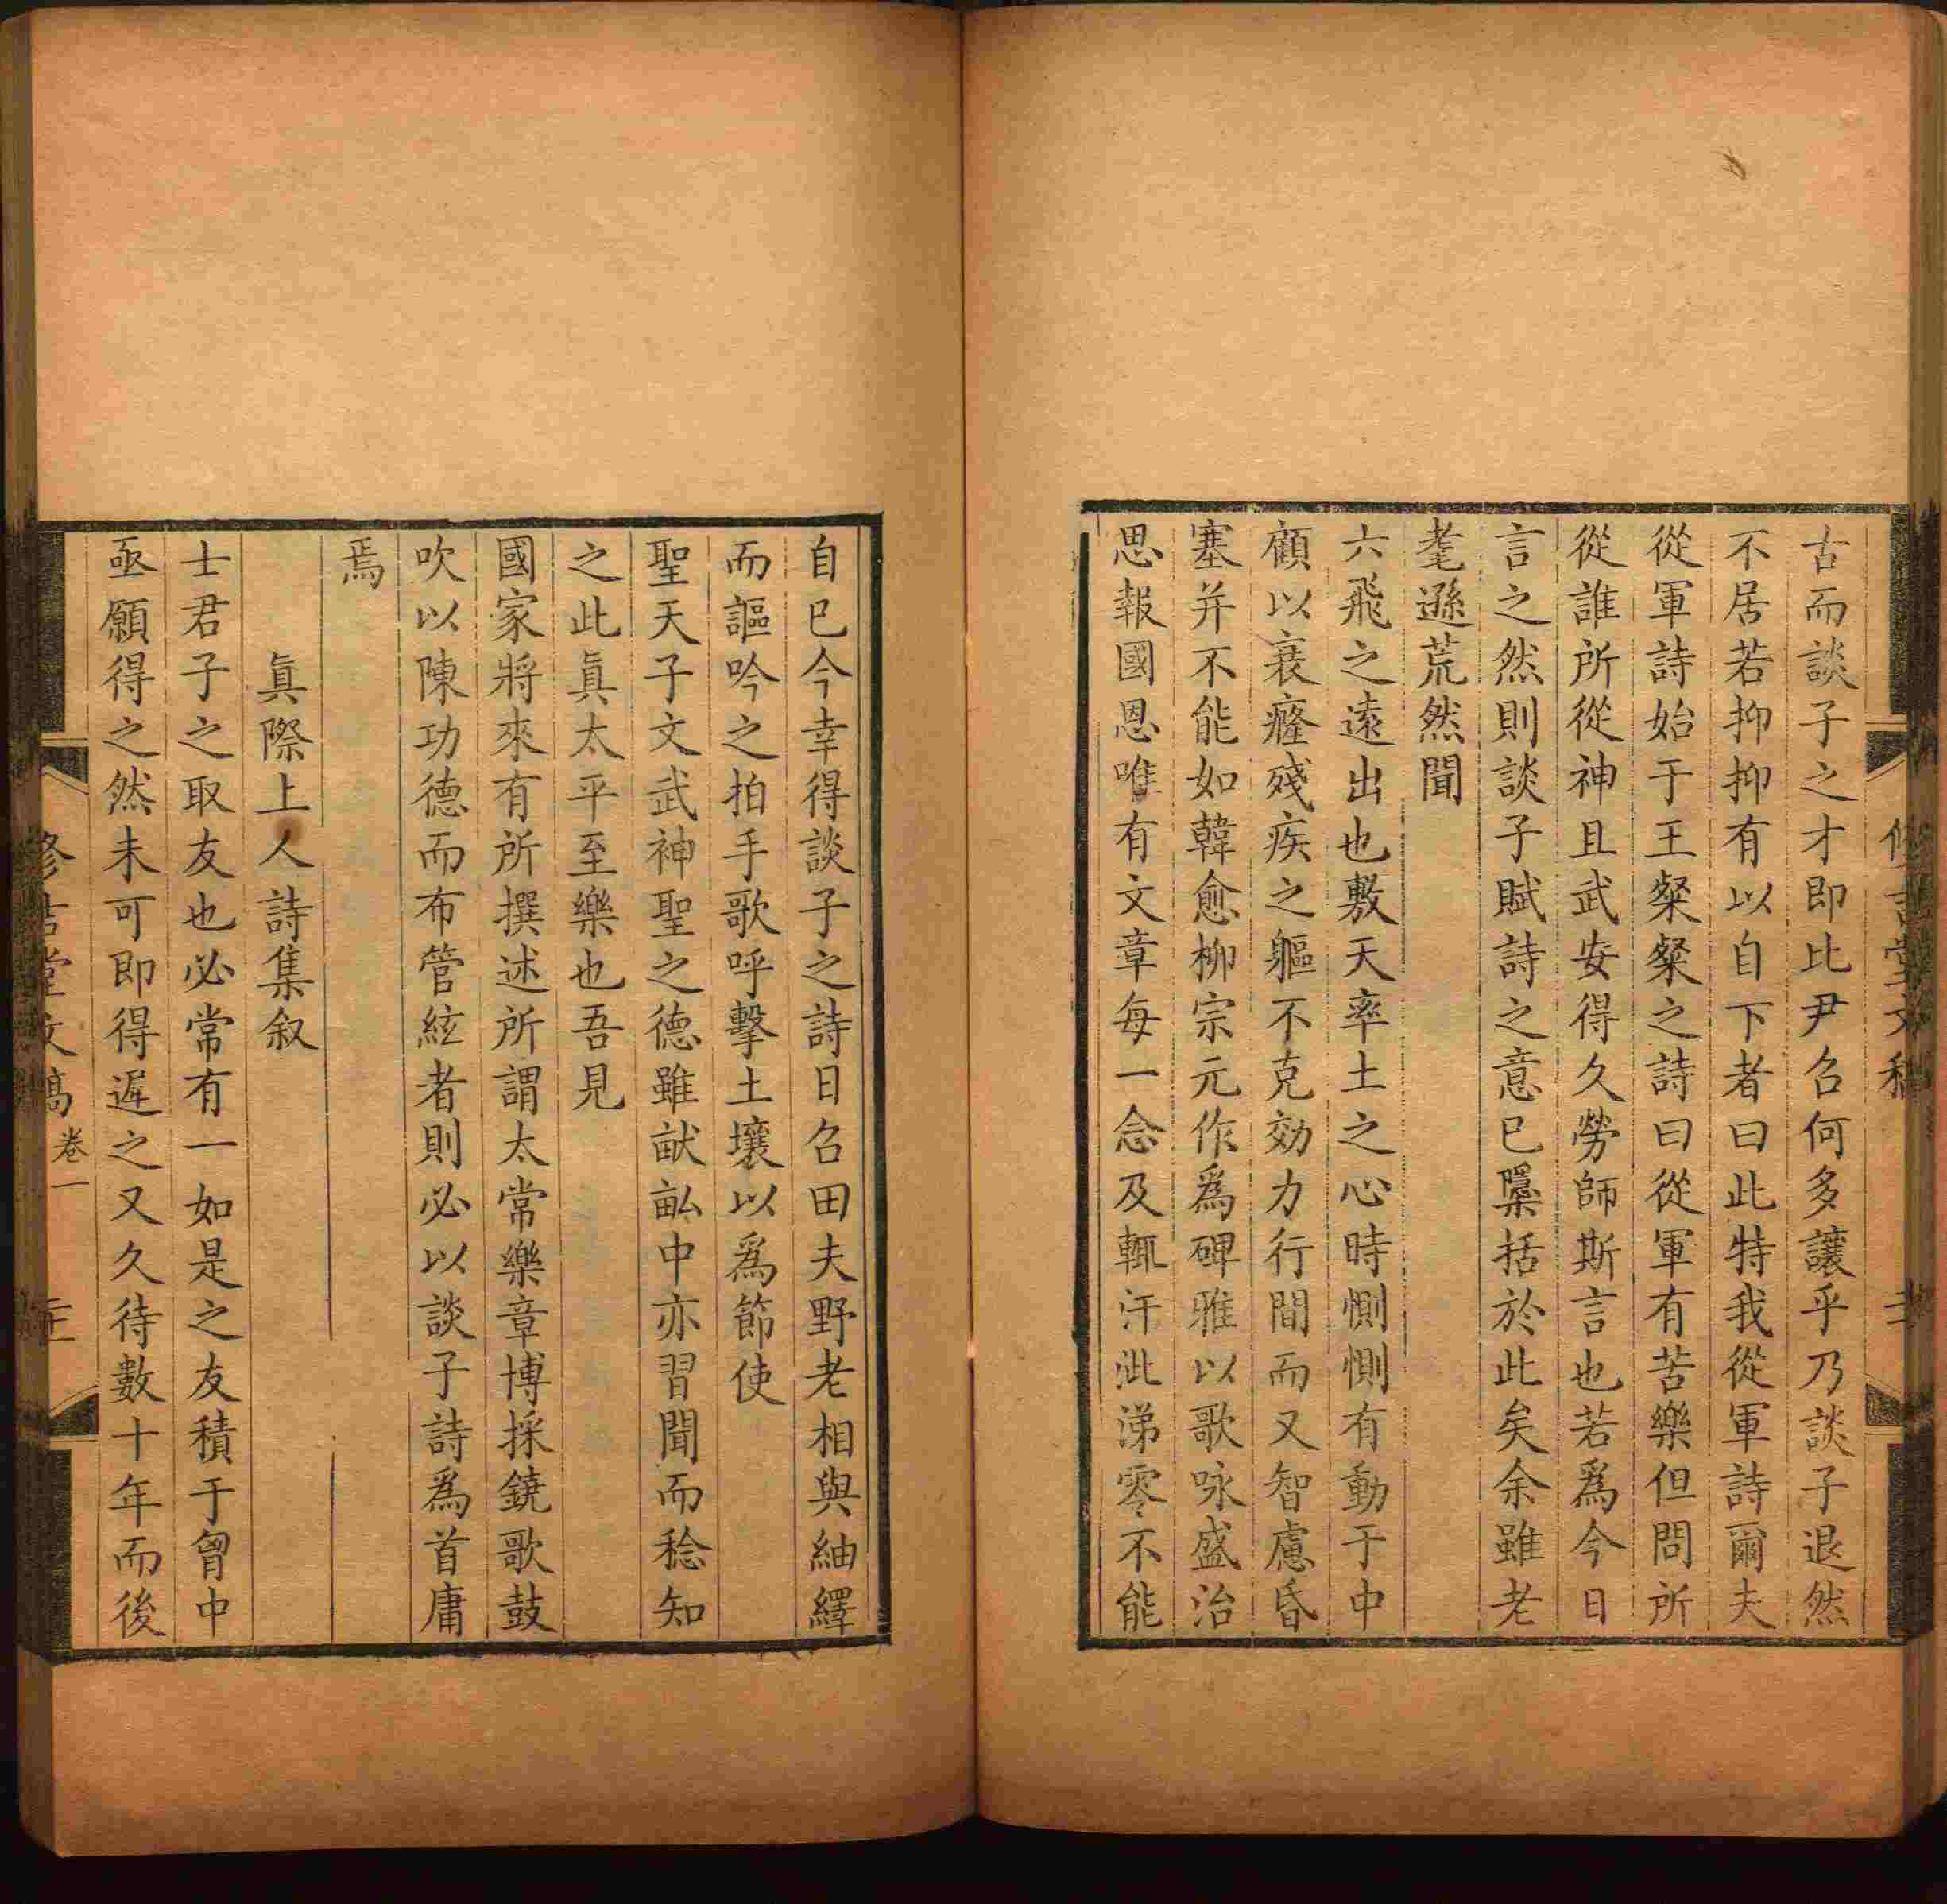 古而談子之才即比尹召何多讓乎乃談子退然
不居若抑抑有以自下者曰此特我從軍詩爾夫
從軍詩始于王粲粲之詩曰從軍有苦樂但問所
從誰所從神且武安得久勞師斯言也若爲今日
言之然則談子賦詩之意已檃括於此矣余雖老
耄遜荒然聞
六飛之遠出也敷天率土之心時惻惻有動于中
顧以衰癃殘疾之軀不克効力行間而又智慮昏
塞并不能如韓愈柳宗元作爲碑雅以歌咏盛治
思報國恩唯有文章每一念及輒汗泚涕零不能
自已今幸得談子之詩日召田夫野老相與紬繹
而謳吟之拍手歌呼擊土壤以爲節使
聖天子文武神聖之德雖畎畝中亦習聞而稔知
之此眞太平至樂也吾見
國家將來有所撰述所謂太常樂章博採鐃歌鼓
吹以陳功德而布管絃者則必以談子詩爲首庸
焉
眞際上人詩集叙
士君子之取友也必常有一如是之友積于胷中
亟願得之然未可即得遲之又久待數十年而後
堂文稿 卷一